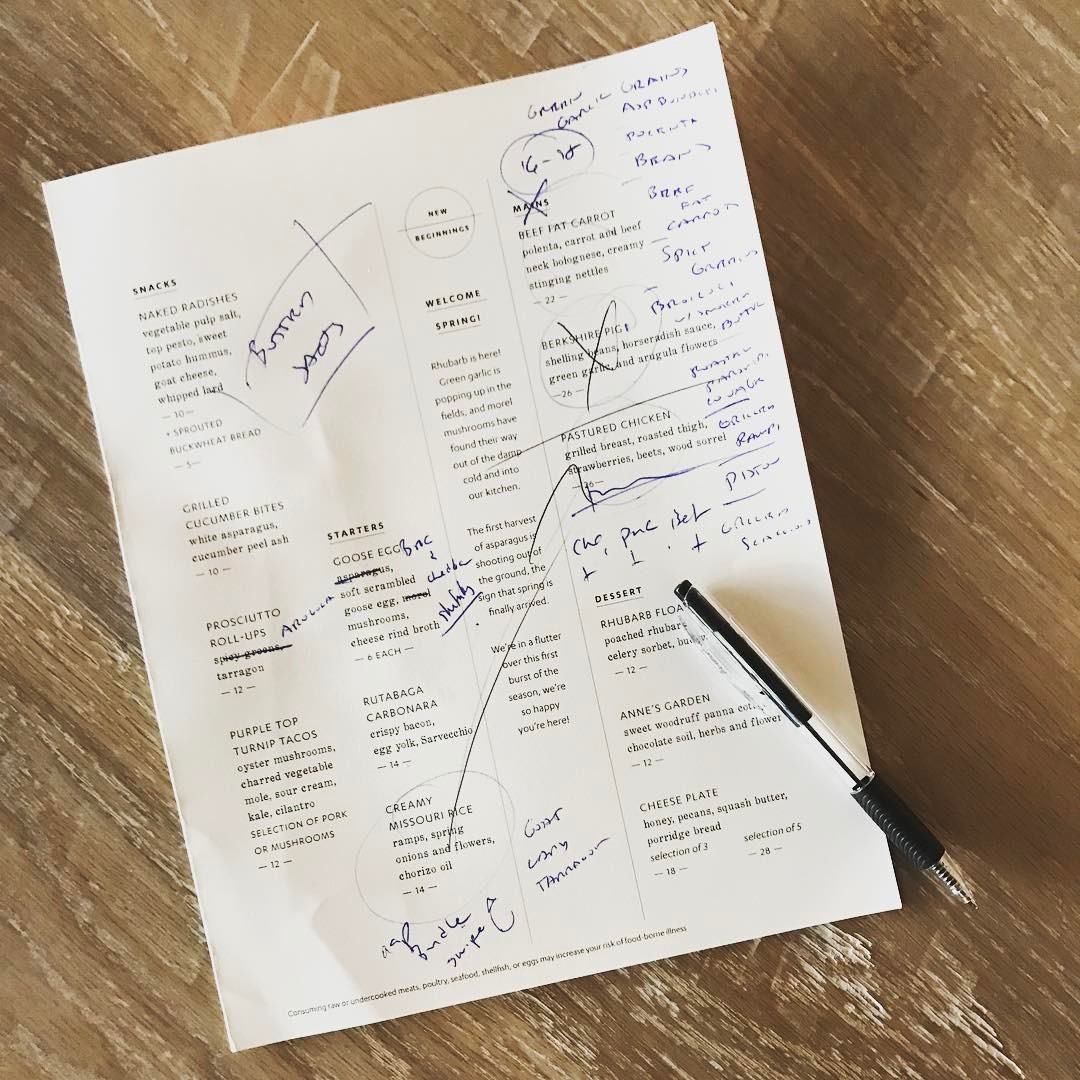 SNACKS
NAKED RADISHES
vegetable pulp salt,
top pesto, sweet
potato hummus,
goat cheese,
whipped lard
— 10 —
+ SPROUTED
BUCKWHEAT BREAD
— 5 —
GRILLED
CUCUMBER BITES
white asparagus,
cucumber peel ash
— 10 —
PROSCIUTTO
ROLL-UPS
ARUGULA
spicy greens,
tarragon
— 12 —
PURPLE TOP
TURNIP TACOS
oyster mushrooms,
charred vegetable
mole, sour cream,
kale, cilantro
SELECTION OF PORK
OR MUSHROOMS
— 12 —
STARTERS
GOOSE EGG
asparagus,
soft scrambled
goose egg, morel
mushrooms,
cheese rind broth
— 6 EACH —
RUTABAGA
CARBONARA
crispy bacon,
egg yolk, Sarvecchio
— 14 —
CREAMY
MISSOURI RICE
ramps, spring
onions and flowers,
chorizo oil
— 14 —
NEW
BEGINNINGS
WELCOME
SPRING!
Rhubarb is here!
Green garlic is
popping up in the
fields, and morel
mushrooms have
found their way
out of the damp
cold and into
our kitchen.
The first harvest
of asparagus is
shooting out of
the ground, the
sign that spring is
finally arrived.
We're in a flutter
over this first
burst of the
season, we're
so happy
you're here!
GOAT
TARRAGON
GREEN
GARLIC GRAINS
POLENTA
16-18
BEEF
FAT
CARROTS
SPICY
GRAINS
BROCCOLI
BUTTER
GRILLED
RAMPS
GRILLED
MAINS
BEEF FAT CARROT
polenta, carrot and beef
neck bolognese, creamy
stinging nettles
— 22 —
BERKSHIRE PIG
shelling beans, horseradish sauce,
green garlic, and arugula flowers
— 26 —
PASTURED CHICKEN
grilled breast, roasted thigh,
strawberries, beets, wood sorrel
— 26 —
DESSERT
RHUBARB FLOA
poached rhubar
celery sorbet,
— 12 —
ANNE'S GARDEN
sweet woodruff panna
chocolate soil, herbs and flower
— 12 —
CHEESE PLATE
honey, pecans, squash butter,
porridge bread
selection of 3
— 18 —
selection of 5
— 28 —
Consuming raw or undercooked meats, poultry, seafood, shellfish, or eggs may increase your risk of food-borne illness